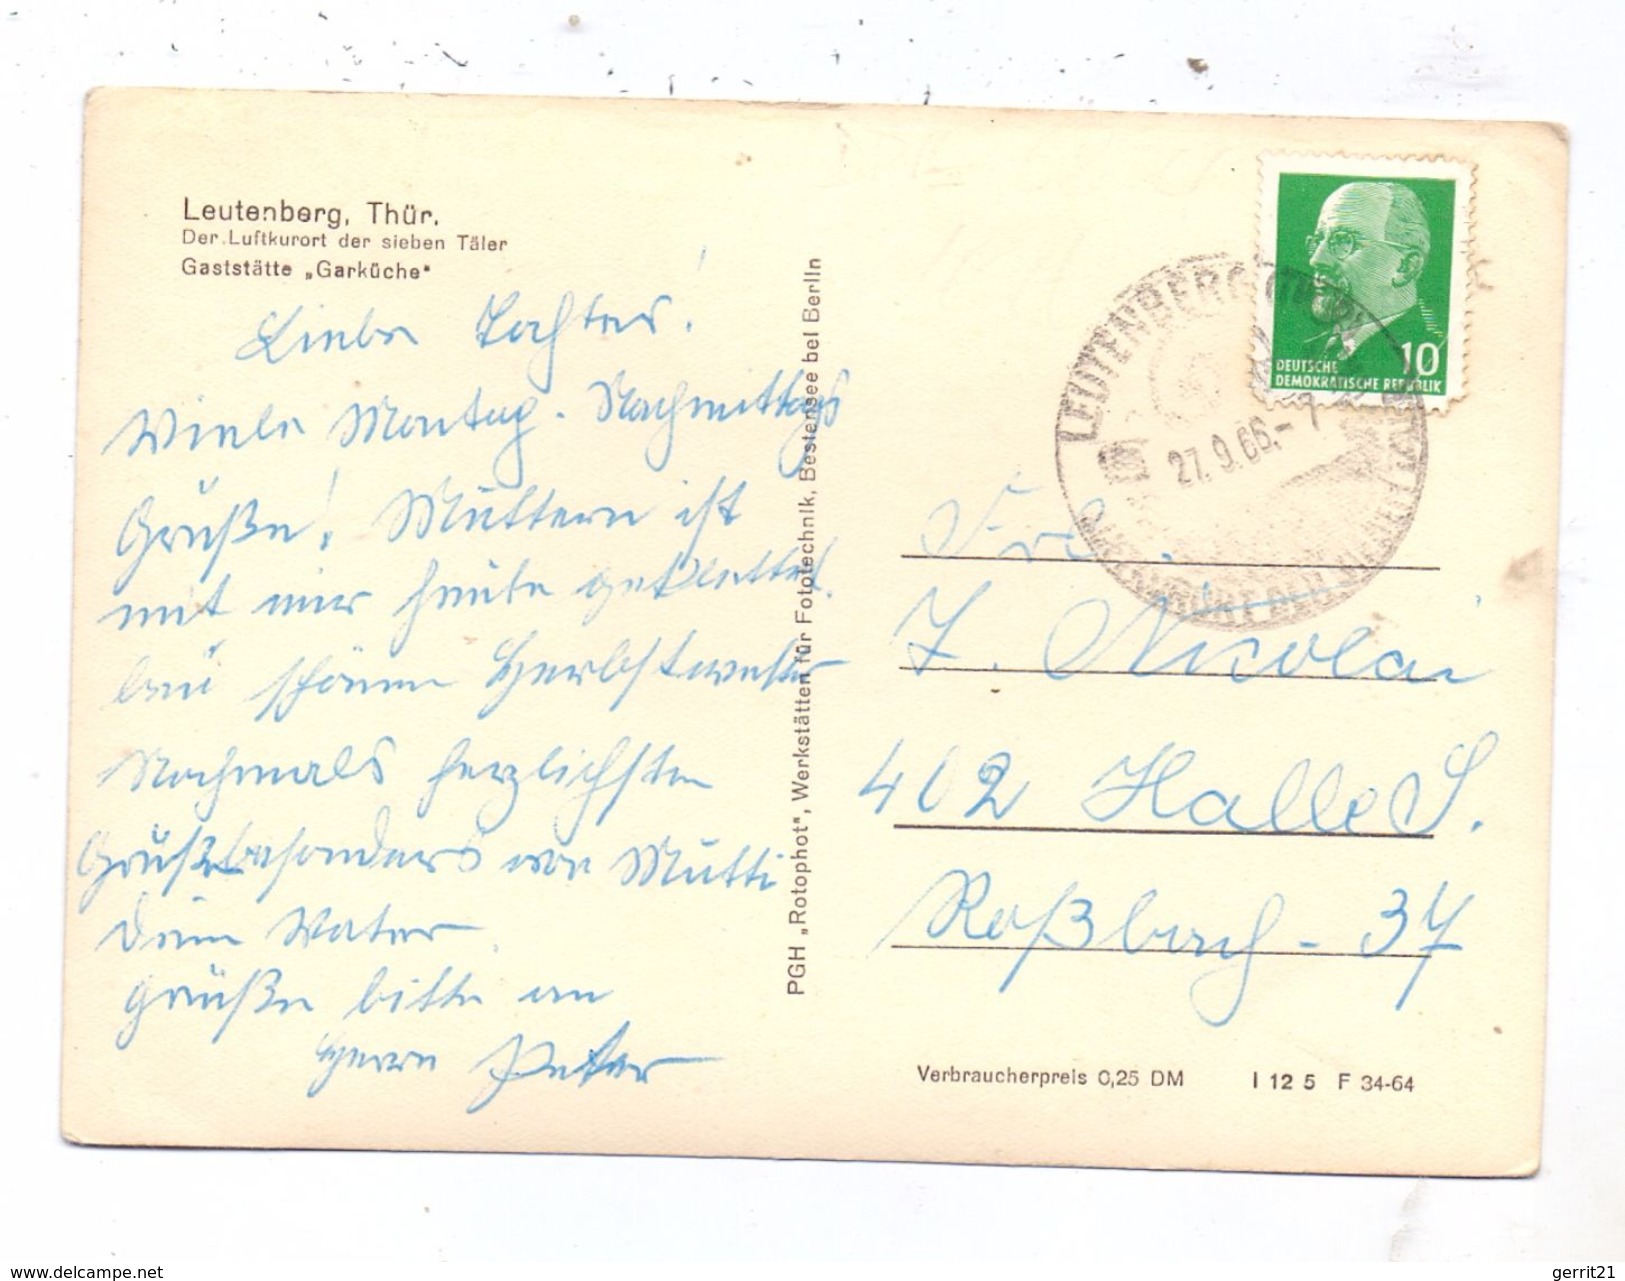 Leutenberg, Thür.
Der Luftkurort der sieben Täler
Gaststätte „Garküche"
Liebe Tochter!
Viele Montag-Nachmittags
Grüße! Muttern ist
mit mir heute geklettert.
bei schönem Herbstwetter
Nochmals herzlichste
Grüße besonders von Mutti
Dein Vater.
Grüße bitte an
Herrn Peter
PGH „Rotophot", Werkstätten für Fototechnik, Bestensee bei Berlin
DEUTSCHE
DEMOKRATISCHE REPUBLIK
10
LEUTENBERG (THÜR)
27.9.66.-7
LUFTKURORT DER SIEBEN TÄLER
Frl.
I. Nicolai
402 Halle S.
Roßbach-37
Verbraucherpreis 0,25 DM I 12 5 F 34-64
www.delcampe.net
gerrit21